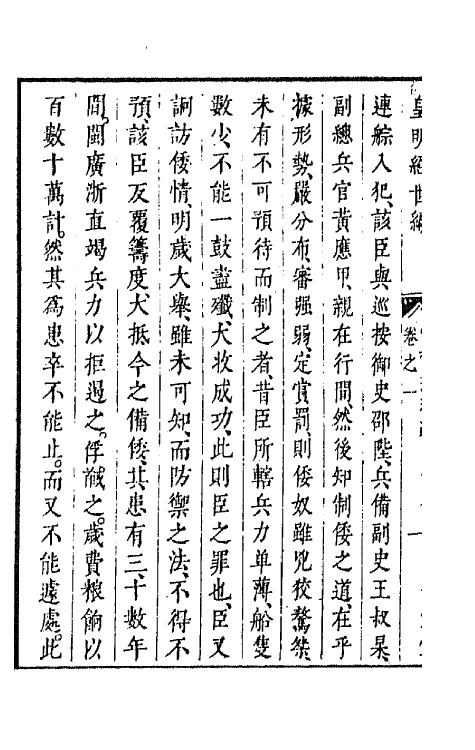 皇明經世編
卷之一
連䑸入犯、該臣與巡按御史邵陛、兵備副史王叔杲、
副總兵官黃應甲、親在行間、然後知制倭之道、在乎
據形勢、嚴分布、審强弱、定賞罰、則倭奴雖兇狡驁桀、
未有不可預待而制之者、昔臣所轄兵力单薄、船隻
數少、不能一鼓盡殲、大收成功、此則臣之罪也、臣又
詗訪倭情、明歲大舉、雖未可知、而防禦之法、不得不
預、該臣反覆籌度、大抵今之備倭、其患有三、十數年
間。閩廣浙直竭兵力以拒遏之。俘馘之。歲費粮餉以
百數十萬計。然其爲患卒不能止。而又不能遽處。此